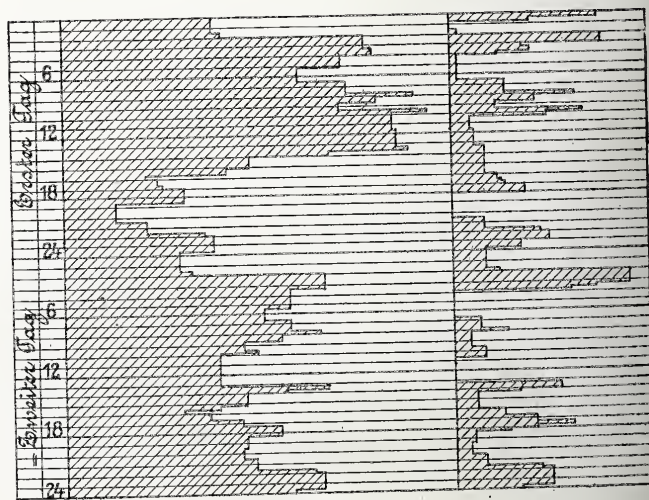 Erster Tag
6
12
18
24
= Zweiter Tag
6
12
18
24